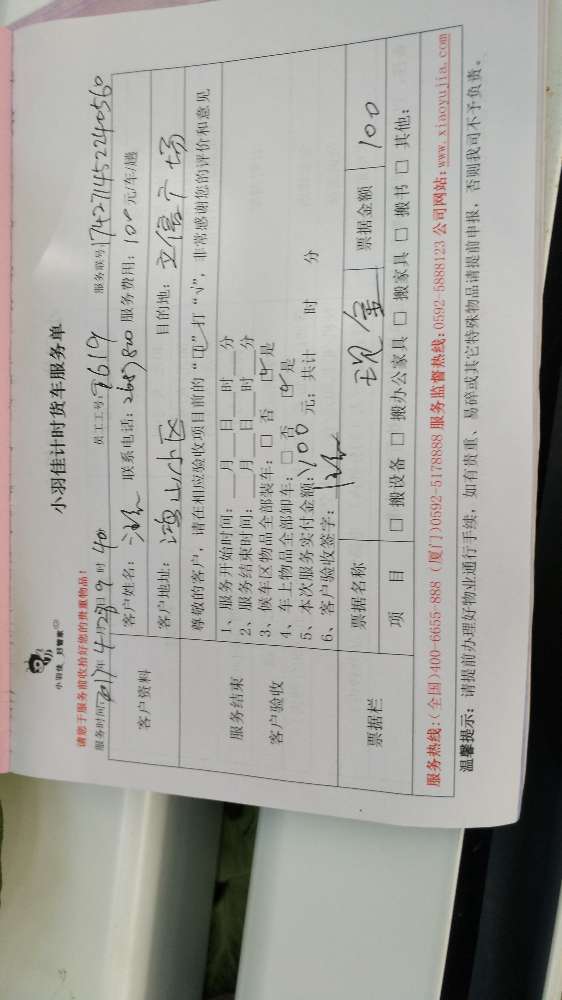 小羽佳计时货车服务单
小羽佳 好管家
请您于服务前收拾好您的贵重物品!
服务时间:2017年4月28日9时40 员工工号:2619 服务联号:174271452240560
客户资料
客户姓名: 联系电话:2689800 服务费用:100元/车/趟
客户地址: 鸿山小区 目的地: 立信广场
尊敬的客户,请在相应验收项目前的“□”打“√”,非常感谢您的评价和意见
服务结束
客户验收
1、服务开始时间:___月___日___时___分
2、服务结束时间:___月___日___时___分
3、候车区物品全部装车:□ 否 ☑ 是
4、车上物品全部卸车:□ 否 ☑ 是
5、本次服务实付金额:100 元; 共计 时 分
6、客户验收签字:
票据栏
票据名称 现金 票据金额 100
项 目 □ 搬设备 □ 搬办公家具 □ 搬家具 □ 搬书 □ 其他:
服务热线:(全国)400-6655-888 (厦门)0592-5178888 服务监督热线:0592-5888123 公司网站:www.xiaoyujia.com
温馨提示: 请提前办理好物业通行手续,如有贵重、易碎或其它特殊物品请提前申报,否则我司不予负责。